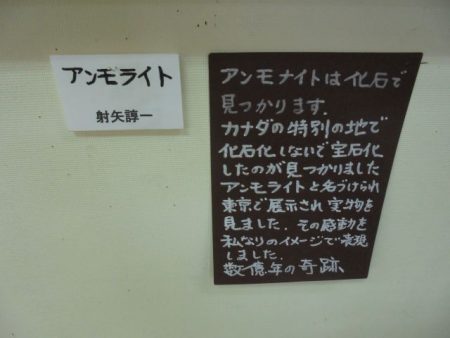 アンモライト
射矢諄一
アンモナイトは化石で
見つかります.
カナダの特別の地で
化石化しないで宝石化
したのが見つかりました
アンモライトと名づけられ
東京で展示され実物を
見ました. その感動を
私なりのイメージで表現
しました.
数億年の奇跡